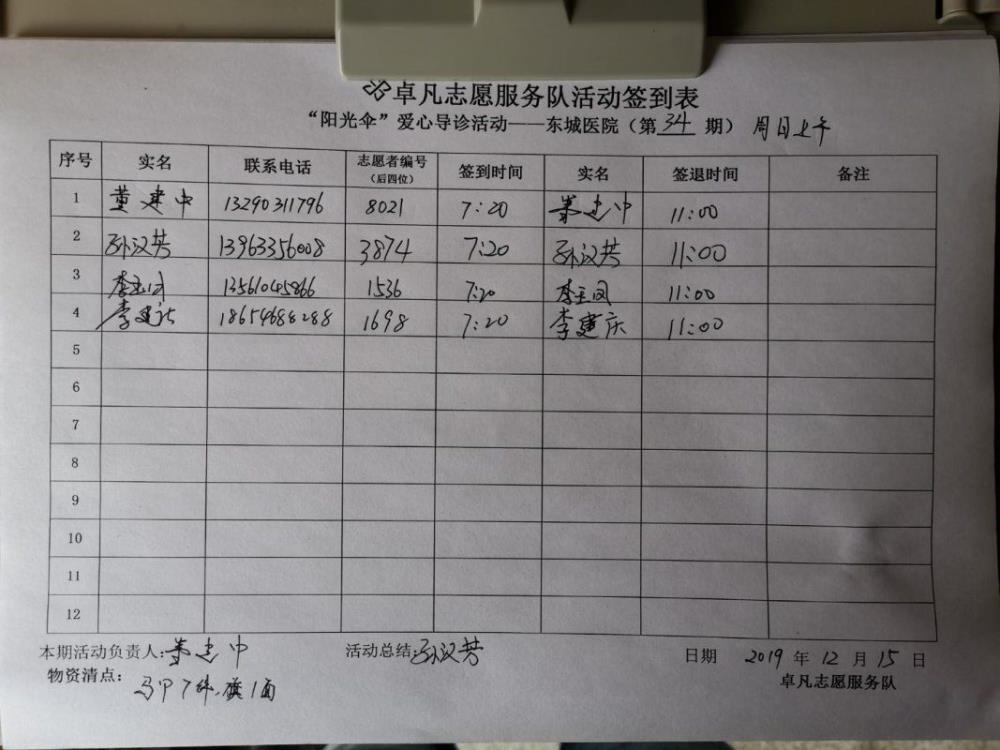 卓凡志愿服务队活动签到表
“阳光伞”爱心导诊活动——东城医院（第 34 期） 周日上午
序号 实名 联系电话 志愿者编号（后四位） 签到时间 实名 签退时间 备注
1 董建中 13290311796 8021 7:20 董建中 11:00
2 孙汉芳 13963356008 3874 7:20 孙汉芳 11:00
3 李玉同 13561045866 1536 7:20 李玉同 11:00
4 李建庆 18654688288 1698 7:20 李建庆 11:00
5
6
7
8
9
10
11
12
本期活动负责人:董建中 活动总结:孙汉芳 日期 2019 年 12 月 15 日
物资清点: 马甲7件、旗1面 卓凡志愿服务队